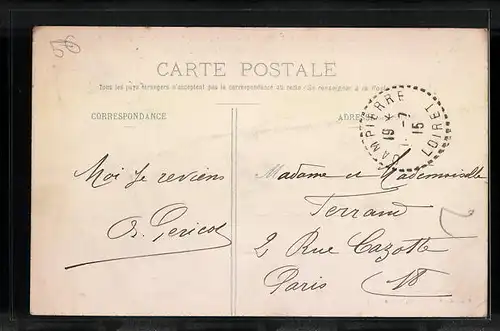 56
CARTE POSTALE
Tous les pays étrangers n'acceptent pas la correspondance au recto (Se renseigner à la Poste)
CORRESPONDANCE
ADRESSE
AMPIERRE
LOIRET
19
7
15
Moi Je reviens
Madame et Mademoiselle
Terrand
2 Rue Cazotte
Paris 18